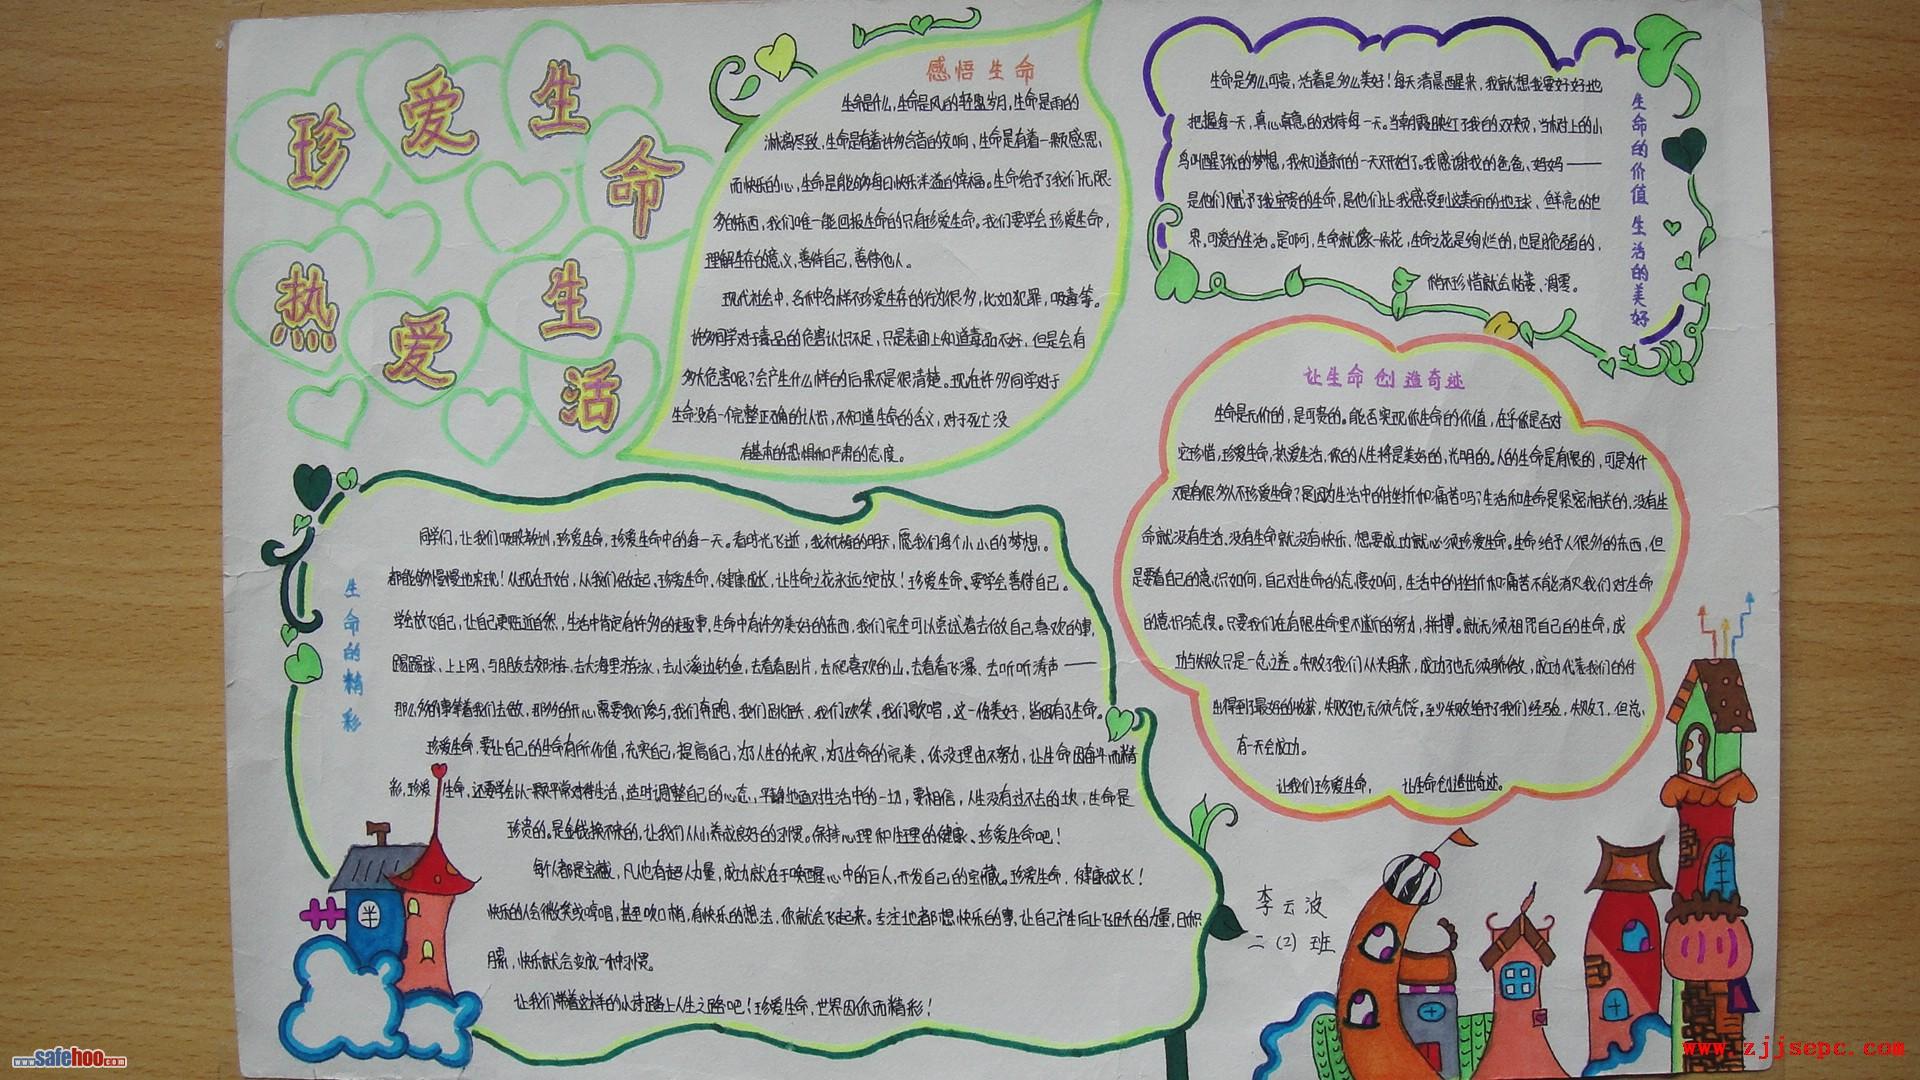 珍爱生命
热爱生活
感悟生命
生命是什么,生命是风的轻盈岁月,生命是雨的
淋漓尽致,生命是有着许多台音的交响,生命是有着一颗感恩,
而快乐的心,生命是能够每日快乐洋溢的幸福。生命给予了我们无限
多的东西,我们唯一能回报生命的只有珍爱生命。我们要学会珍爱生命,
理解生存的意义,善待自己,善待他人。
现代社会中,各种各样不珍爱生存的行为很多,比如犯罪,吸毒等。
许多同学对于毒品的危害认识不足,只是表面上知道毒品不好,但是会有
多大危害呢?会产生什么样的后果不是很清楚。现在许多同学对于
生命没有一个完整正确的认识,不知道生命的含义,对于死亡没
有基本的恐惧和严肃的态度。
生命是多么可贵,活着是多么美好!每天清晨醒来,我就想我要好好地
把握每一天,真心真意的对待每一天。当朝霞映红了我的双颊,当树上的小
鸟叫醒了我的梦想,我知道新的一天又开始了。我感谢我的爸爸,妈妈——
是他们赋予了我宝贵的生命,是他们让我感受到这美丽的地球、鲜亮的世
界,可爱的生活。是啊,生命就像一朵花,生命之花是绚烂的,也是脆弱的,
稍不珍惜就会枯萎、凋零。
生命的价值 生活的美好
让生命创造奇迹
生命是无价的,是可贵的。能否实现你生命的价值,在乎你是否对
它珍惜,珍爱生命,热爱生活,你的人生将是美好的,光明的。人的生命是有限的,可是为什
么还有很多人不珍爱生命?是因为生活中的挫折和痛苦吗?生活和生命是紧密相关的,没有生
命就没有生活、没有生命就没有快乐、想要成功就必须珍爱生命。生命给予人很多的东西,但
是要看自己的意识如何,自己对生命的态度如何,生活中的挫折和痛苦不能消灭我们对生命
的意识与态度。只要我们在有限生命里不断的努力,拼搏。就无须诅咒自己的生命,成
功与失败只是一念之差。失败了我们从头再来,成功了也无须骄傲,成功代表我们的付
出得到了最好的收获,失败也无须气馁,至少失败给予了我们经验,失败了,但总
有一天会成功。
让我们珍爱生命, 让生命创造出奇迹。
生命的精彩
同学们,让我们吸取教训,珍爱生命,珍爱生命中的每一天。看时光飞逝,我祈祷的明天,愿我们每个小小的梦想、
都能够慢慢地实现!从现在开始,从我们做起、珍爱生命,健康成长,让生命之花永远绽放!珍爱生命、要学会善待自己。
学会放飞自己,让自己更贴近自然,生活中肯定有许多的趣事,生命中有许多美好的东西,我们完全可以尝试着去做自己喜欢的事,
踢踢球、上上网、与朋友去郊游、去大海里游泳、去小溪边钓鱼,去看看剧片,去爬喜欢的山,去看看飞瀑、去听听涛声——
那么多的事等着我们去做,那多的开心,需要我们参与,我们奔跑,我们跳跃,我们欢笑,我们歌唱,这一份美好,皆因有了生命。
珍爱生命,要让自己的生命有所价值,充实自己,提高自己,为了人生的充实,为了生命的完美,你没理由不努力,让生命因奋斗而精
彩,珍爱生命,还要学会以一颗平常对待生活,适时调整自己的心态,平静地面对生活中的一切,要相信,人生没有过不去的坎,生命是
珍贵的。是金钱换不来的,让我们从小养成良好的习惯。保持心理和生理的健康、珍爱生命吧!
每个人都是宝藏,凡他有超人力量,成功就在于唤醒心中的巨人,开发自己的宝藏。珍爱生命,健康成长!
快乐的人会微笑或哼唱,甚至吹口梢,有快乐的想法,你就会飞起来。专注地都想快乐的事,让自己产生向上飞跃的力量,日积
月累,快乐就会变成一种习惯。
让我们带着这样的心踏上人生之路吧!珍爱生命,世界因你而精彩!
李云波
二(2)班
www.safehoo.com
www.zjjsepc.com